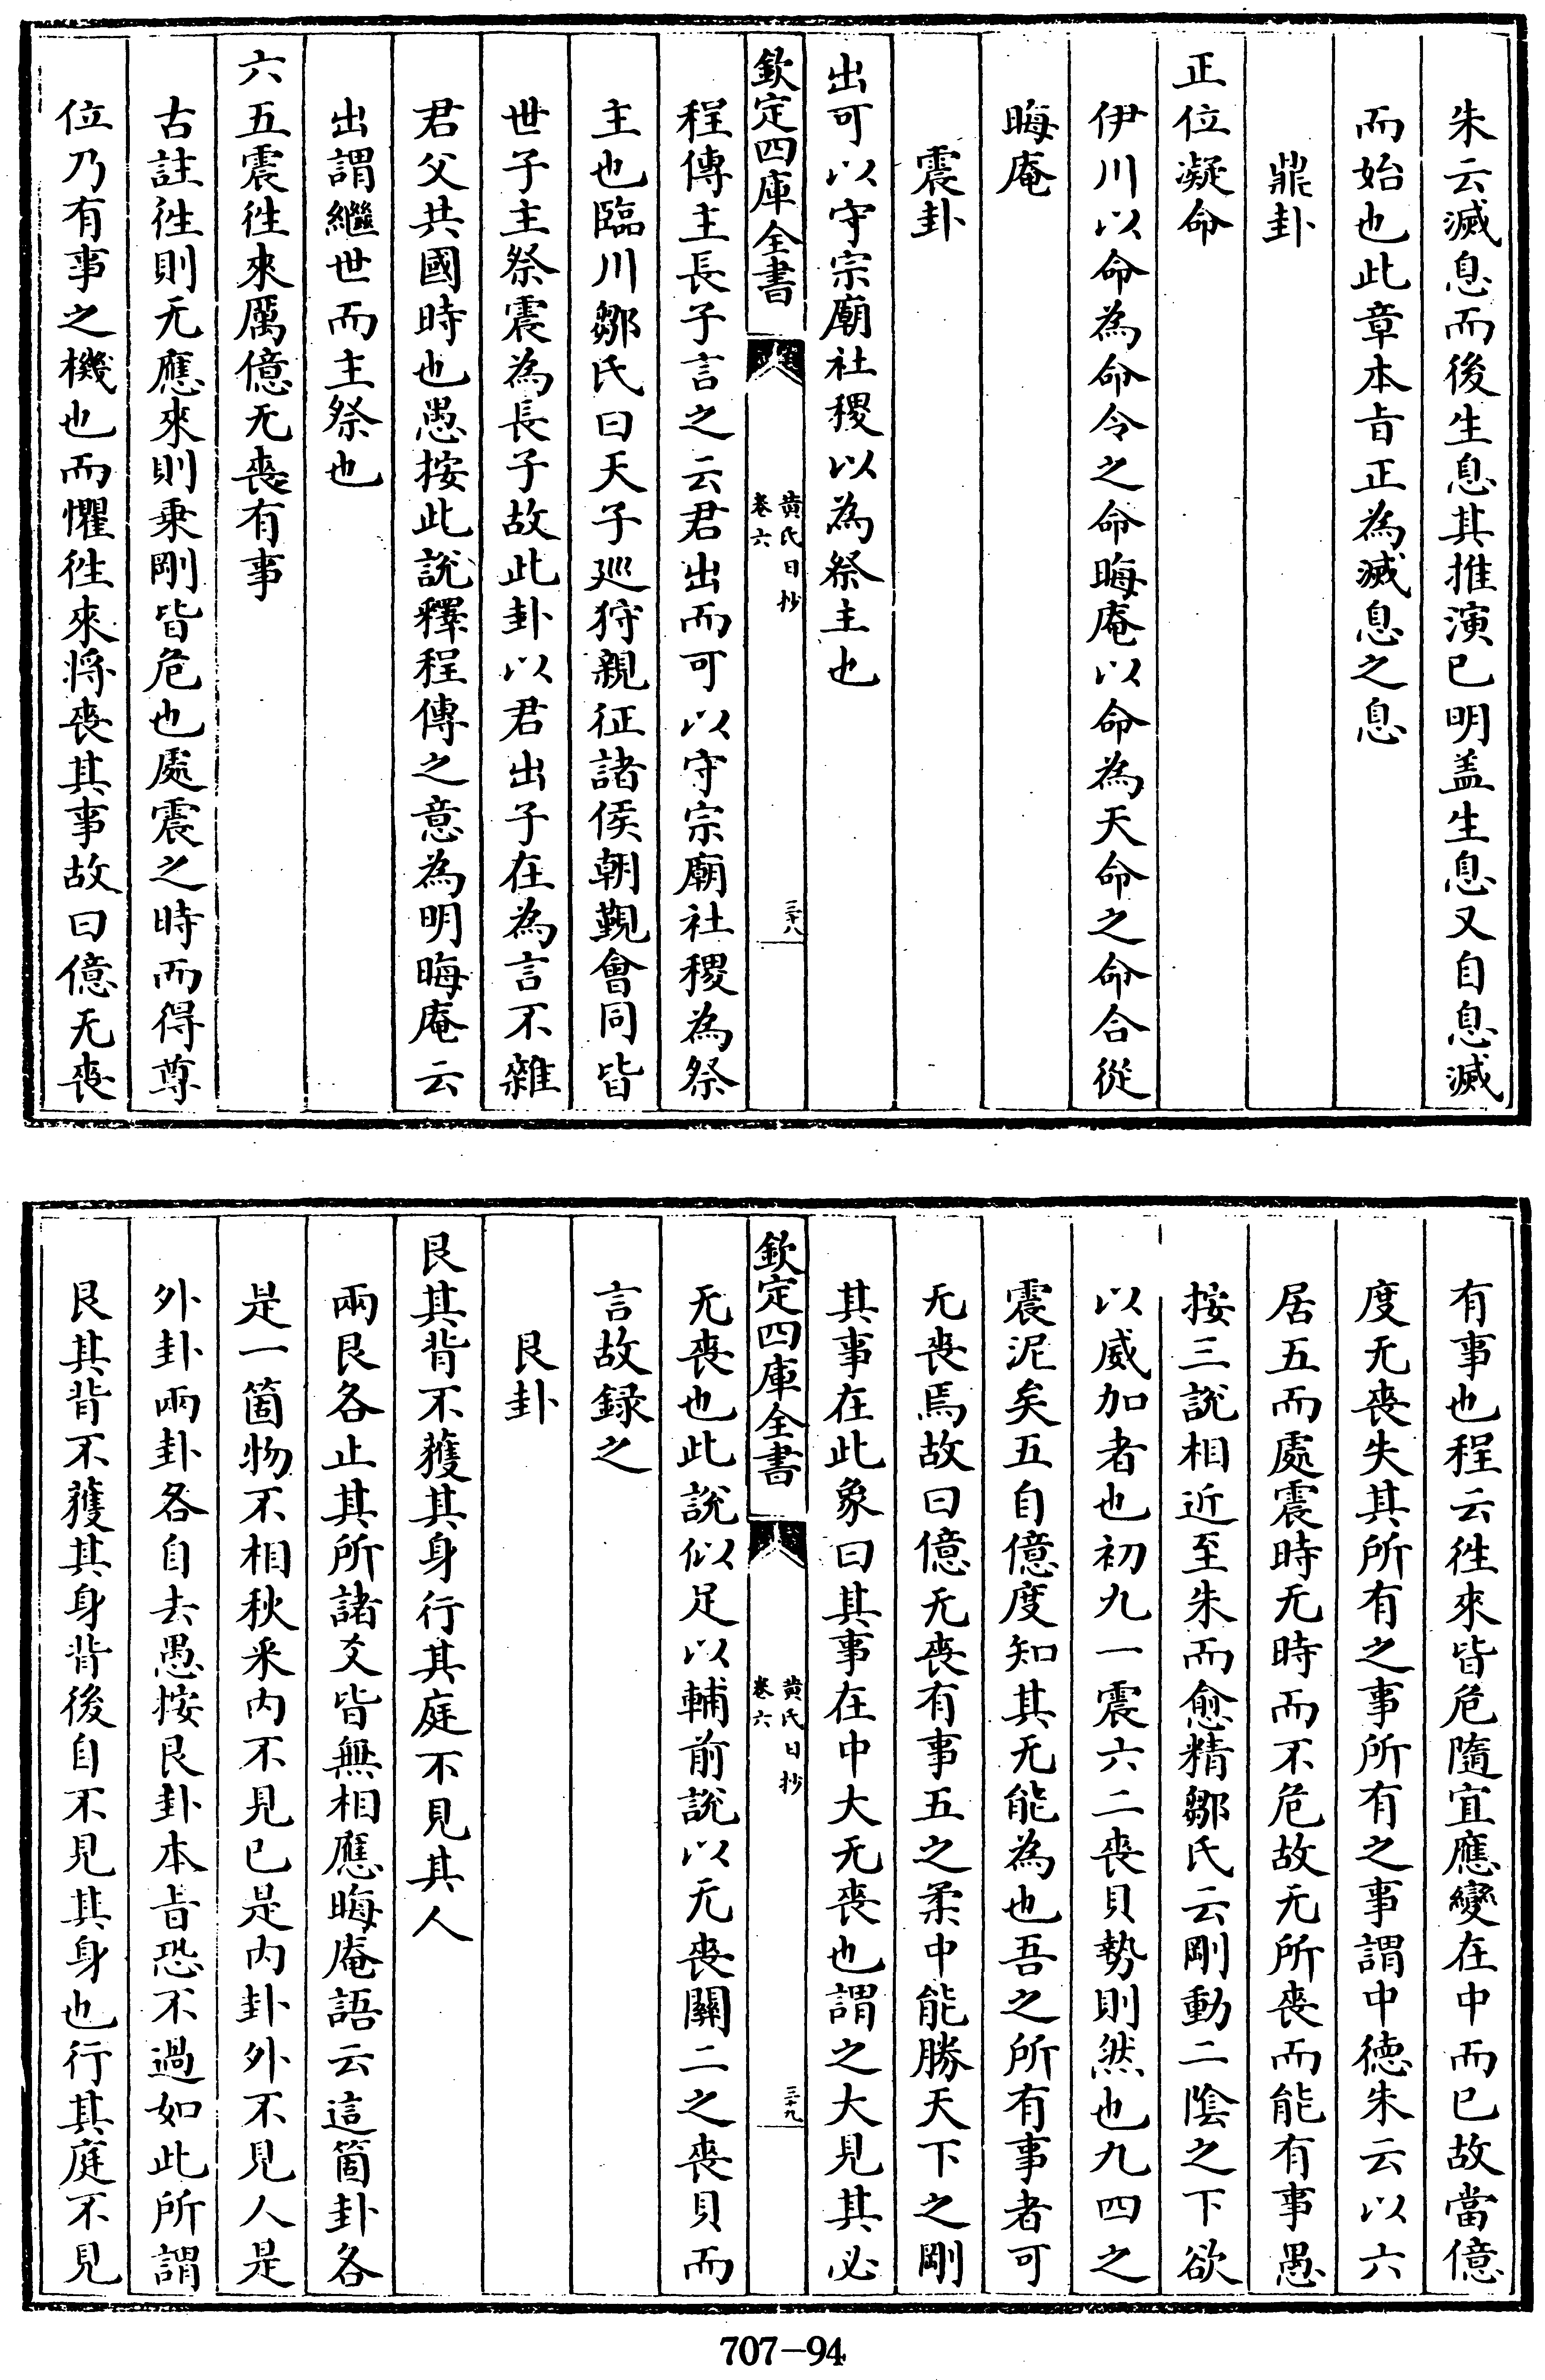 朱云滅息而後生息其推演已明盖生息又自息滅
而始也此章本㫖正為滅息之息
鼎卦
正位凝命
伊川以命為命令之命晦庵以命為天命之命合從
晦庵
震卦
出可以守宗廟社稷以為祭主也
欽定四庫全書
黄氏日抄
卷六
三十八
程傳主長子言之云君出而可以守宗廟社稷為祭
主也臨川鄒氏曰天子廵狩親征諸侯朝覲會同皆
世子主祭震為長子故此卦以君出子在為言不雜
君父共國時也愚按此說釋程傳之意為明晦庵云
出謂繼世而主祭也
六五震徃來厲億无喪有事
古註徃則无應來則乗剛皆危也處震之時而得尊
位乃有事之機也而懼徃來将喪其事故曰億无喪
有事也程云徃來皆危隨宜應變在中而已故當億
度无喪失其所有之事所有之事謂中徳朱云以六
居五而處震時无時而不危故无所喪而能有事愚
按三說相近至朱而愈精鄒氏云剛動二陰之下欲
以威加者也初九一震六二喪貝勢則然也九四之
震泥矣五自億度知其无能為也吾之所有事者可
无喪焉故曰億无喪有事五之柔中能勝天下之剛
其事在此象曰其事在中大无喪也謂之大見其必
欽定四庫全書
黄氏日抄
卷六
三十九
无喪也此說似足以輔前說以无喪關二之喪貝而
言故録之
艮卦
艮其背不獲其身行其庭不見其人
兩艮各止其所諸爻皆無相應晦庵語云這箇卦各
是一箇物不相秋采内不見已是内卦外不見人是
外卦兩卦各自去愚按艮卦本㫖恐不過如此所謂
艮其背不獲其身背後自不見其身也行其庭不見
707-94